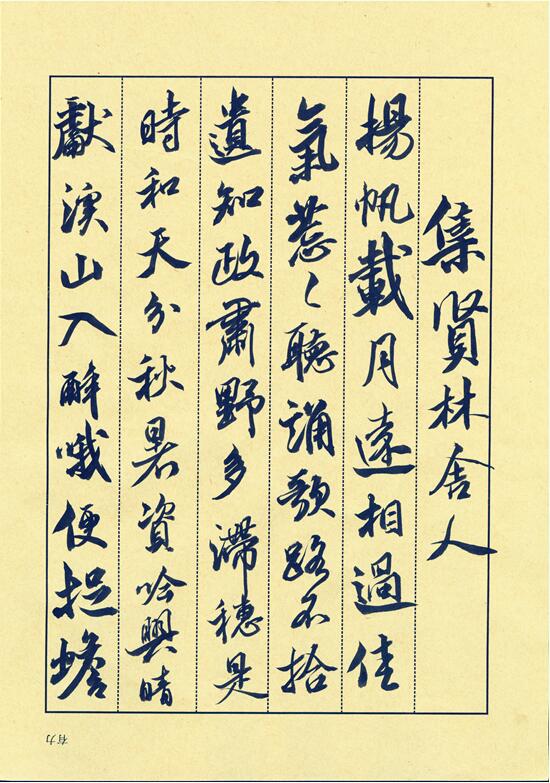 集賢林舍人
揚帆載月遠相過佳
氣葱〻聽誦歌路不拾
遺知政肅野多滯穗是
時和天分秋暑資吟興晴
獻溪山入醉哦便捉蟾
有力